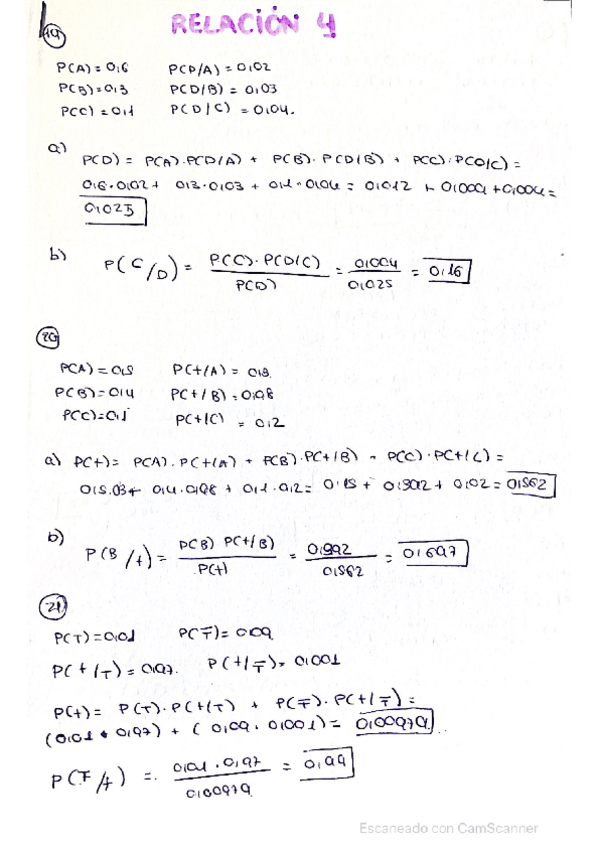 19 RELACIÓN 4
P(A) = 0,6 P(D/A) = 0,02
P(B) = 0,3 P(D/B) = 0,03
P(C) = 0,1 P(D/C) = 0,04.
a)
P(D) = P(A)·P(D/A) + P(B)·P(D/B) + P(C)·P(D/C) =
0,6·0,02 + 0,3·0,03 + 0,1·0,04 = 0,012 + 0,009 + 0,004 =
0,025
b) P(C/D) = P(C)·P(D/C) / P(D) = 0,004 / 0,025 = 0,16
20
P(A) = 0,5 P(+/A) = 0,3.
P(B) = 0,4 P(+/B) = 0,98
P(C) = 0,1 P(+/C) = 0,2
a) P(+) = P(A)·P(+/A) + P(B)·P(+/B) + P(C)·P(+/C) =
0,5·0,3 + 0,4·0,98 + 0,1·0,2 = 0,15 + 0,392 + 0,02 = 0,562
b) P(B/+) = P(B) P(+/B) / P(+) = 0,392 / 0,562 = 0,697
21
P(T) = 0,01 P(T̅) = 0,09
P(+/T) = 0,97. P(+/T̅) = 0,001
P(+) = P(T)·P(+/T) + P(T̅)·P(+/T̅) =
(0,01 · 0,97) + (0,09 · 0,001) = 0,00979
P(T̅/+) = 0,01 · 0,97 / 0,00979 = 0,99
Escaneado con CamScanner